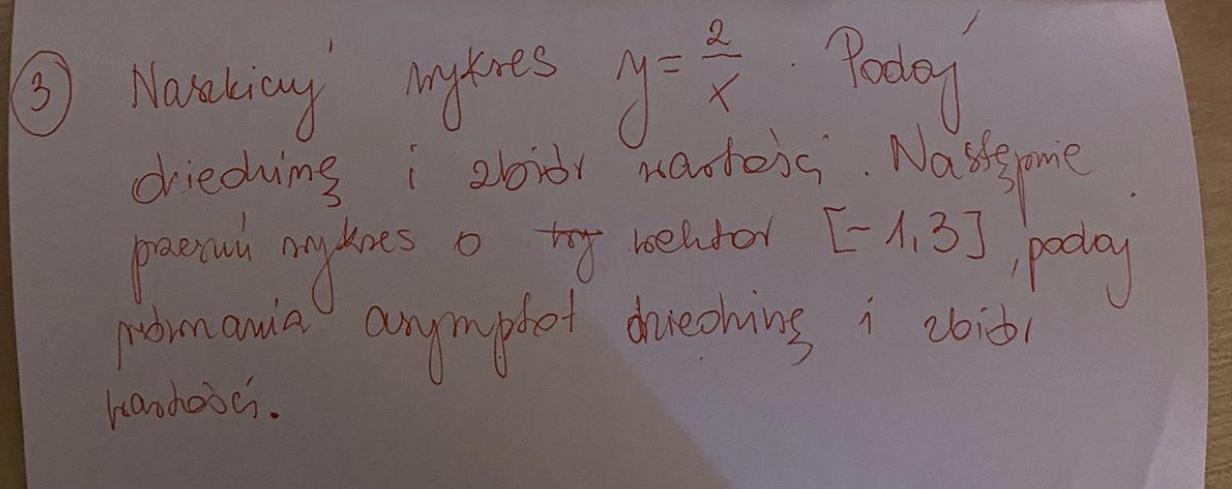 ③ Naszkicuj wykres y = 2/x . Podaj
dziedzinę i zbiór wartości. Następnie
przesuń wykres o wektor [-1,3], podaj
równania asymptot dziedzinę i zbiór
wartości.